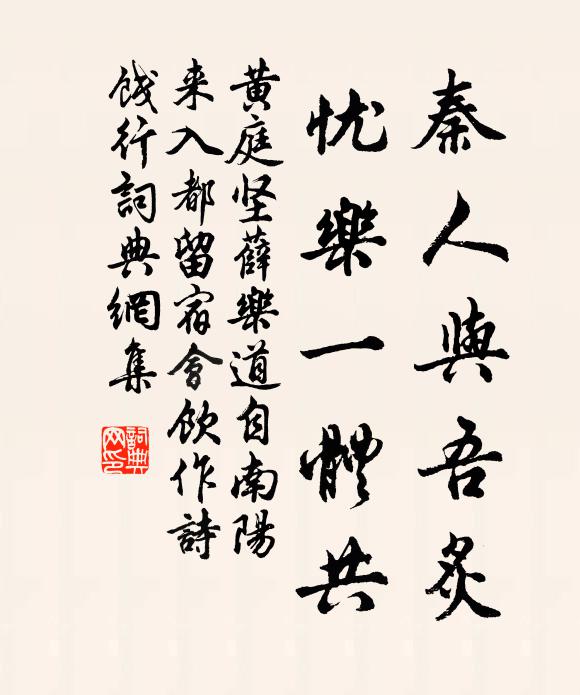 秦人與吾炙
忧樂一體共
黃庭坚薛樂道自南陽
来入都留宿會飲作詩
餞行詞典網集
詞典
网印